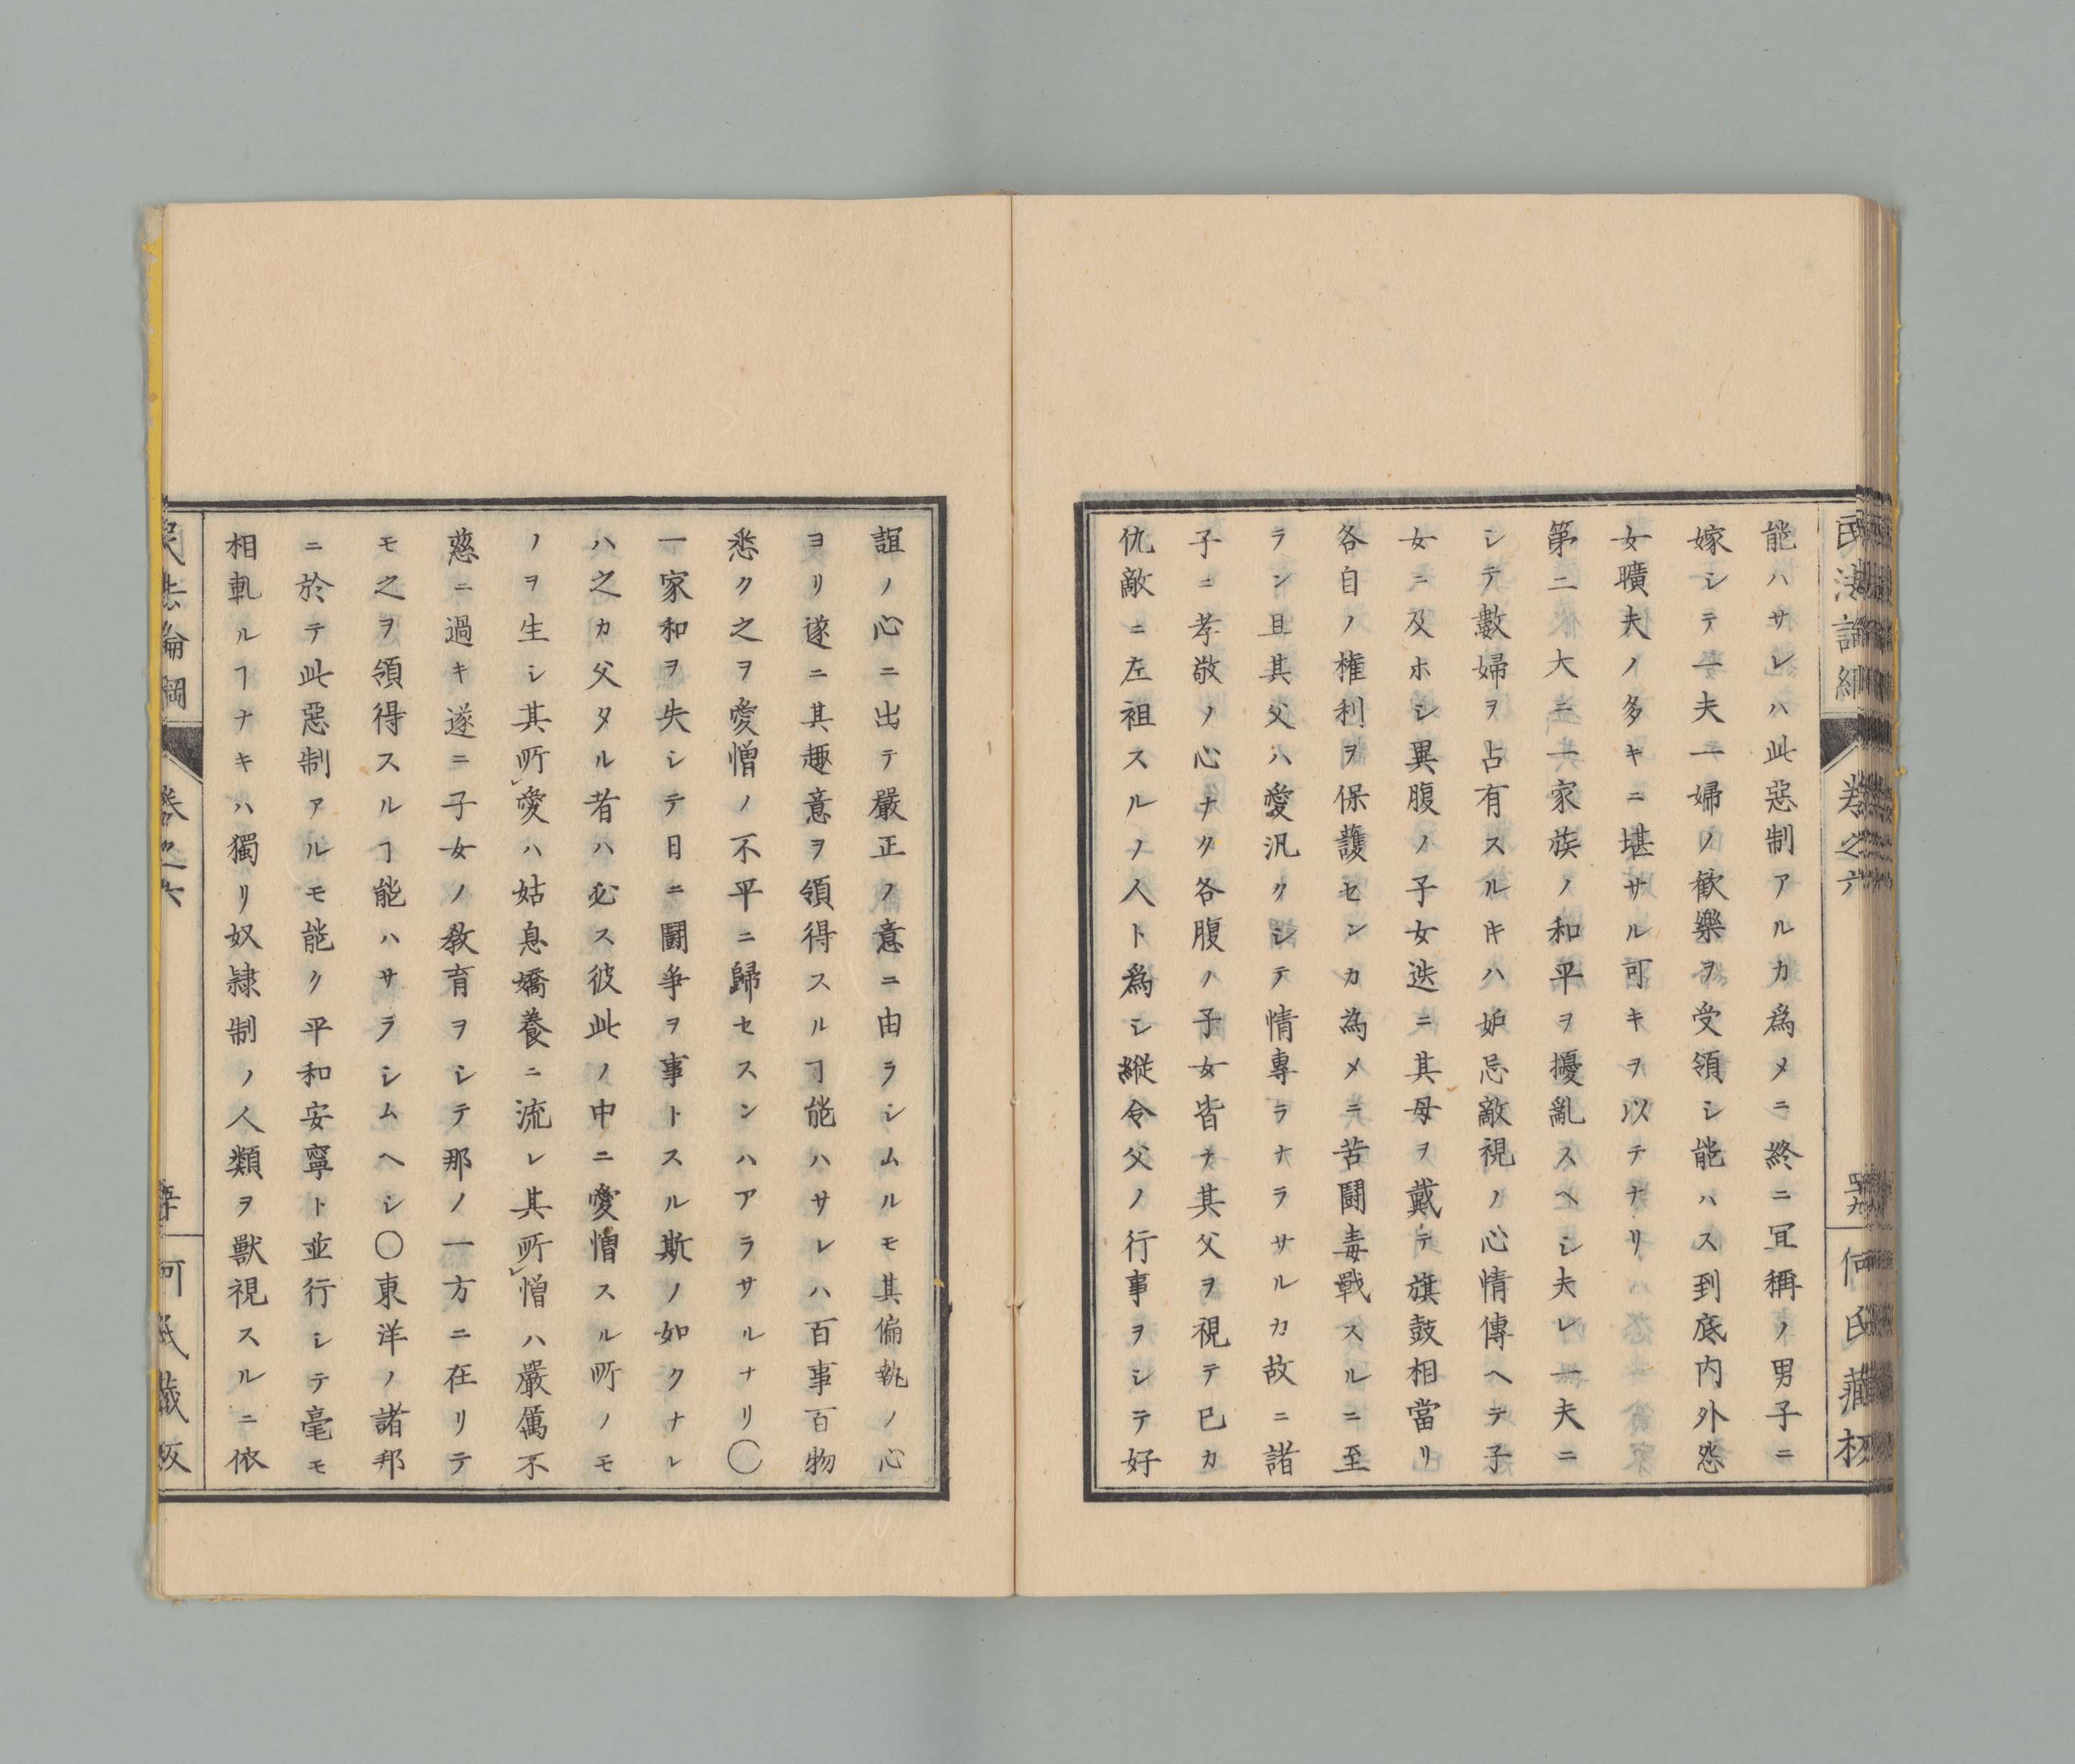 民法論綱 卷之六 四十九 何氏藏板
能ハサレハ此惡制アルカ爲メニ終ニ冝稱ノ男子ニ
嫁シテ一夫一婦ノ歓樂ヲ受領シ能ハス到底内外怨
女曠夫ノ多キニ堪サル可キヲ以テナリ
第二大ニ一家族ノ和平ヲ擾亂スヘシ夫レ一夫ニ
シテ數婦ヲ占有スルキハ妒忌敵視ノ心情傳ヘテ子
女ニ及ホシ異腹ノ子女迭ニ其母ヲ戴テ旗鼓相當リ
各自ノ権利ヲ保護センカ為メニ苦闘毒戰スルニ至
ラン且其父ハ愛汎クシテ情專ラナラサルカ故ニ諸
子ニ孝敬ノ心ナク各腹ノ子女皆ナ其父ヲ視テ已カ
仇敵ニ左袒スルノ人ト爲シ縦令父ノ行事ヲシテ好
誼ノ心ニ出テ嚴正ノ意ニ由ラシムルモ其偏執ノ心
ヨリ遂ニ其趣意ヲ領得スルヿ能ハサレハ百事百物
悉ク之ヲ愛憎ノ不平ニ歸セスンハアラサルナリ〇
一家和ヲ失シテ日ニ鬭爭ヲ事トスル斯ノ如クナレ
ハ之カ父タル者ハ必ス彼此ノ中ニ愛憎スル所ノモ
ノヲ生シ其所愛ハ姑息嬌養ニ流レ其所憎ハ嚴厲不
慈ニ過キ遂ニ子女ノ教育ヲシテ那ノ一方ニ在リテ
モ之ヲ領得スルヿ能ハサラシムヘシ〇東洋ノ諸邦
ニ於テ此惡制アルモ能ク平和安寧ト並行シテ毫モ
相軋ルヿナキハ獨リ奴隷制ノ人類ヲ獸視スルニ依
民法論綱 卷之六 五十 何氏藏板